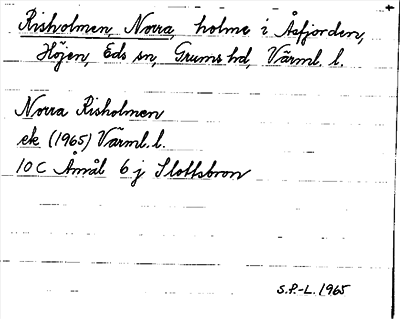 Risholmen, Norra, holme i Åsfjorden,
Höjen, Eds sn, Grums hd, Värml. l.
Norra Risholmen
ek (1965) Värml. l.
10 C Åmål 6 j Slottsbron
S.P.-L. 1965